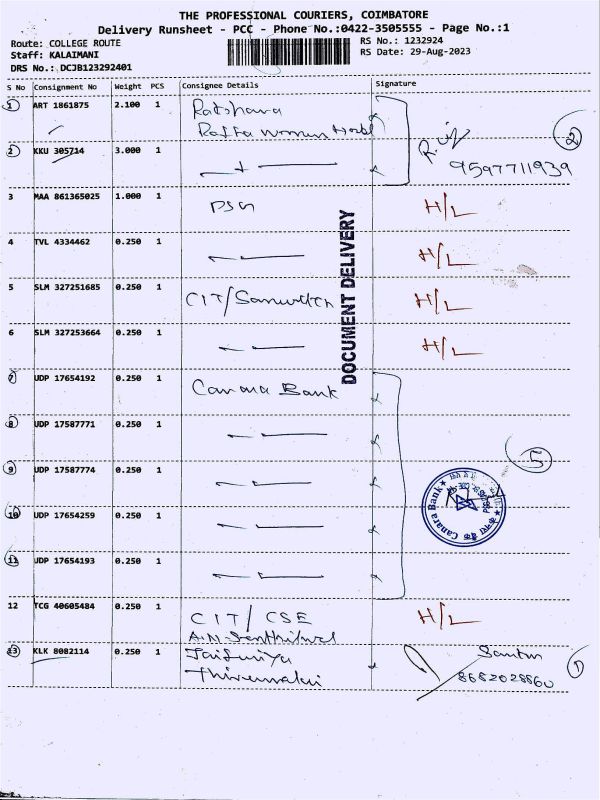 THE PROFESSIONAL COURIERS, COIMBATORE
Delivery Runsheet - PCC - Phone No.:0422-3505555 - Page No.:1
Route: COLLEGE ROUTE
Staff: KALAIMANI
DRS No.: DCJB123292401
RS No.: 1232924
RS Date: 29-Aug-2023
S No Consignment No Weight PCS Consignee Details Signature
1 ART 1861875 2.100 1
2
2 KKU 305714 3.000 1
9597711939
3 MAA 861365025 1.000 1 PSG H/L
4 TVL 4334462 0.250 1 H/L
DOCUMENT DELIVERY
5 SLM 327251685 0.250 1 CIT/ H/L
6 SLM 327253664 0.250 1 H/L
7 UDP 17654192 0.250 1 Canara Bank
8 UDP 17587771 0.250 1
5
9 UDP 17587774 0.250 1
Canara Bank
10 UDP 17654259 0.250 1
11 UDP 17654193 0.250 1
12 TCG 40605484 0.250 1 CIT/CSE H/L
13 KLK 8082114 0.250 1
8682028860
1